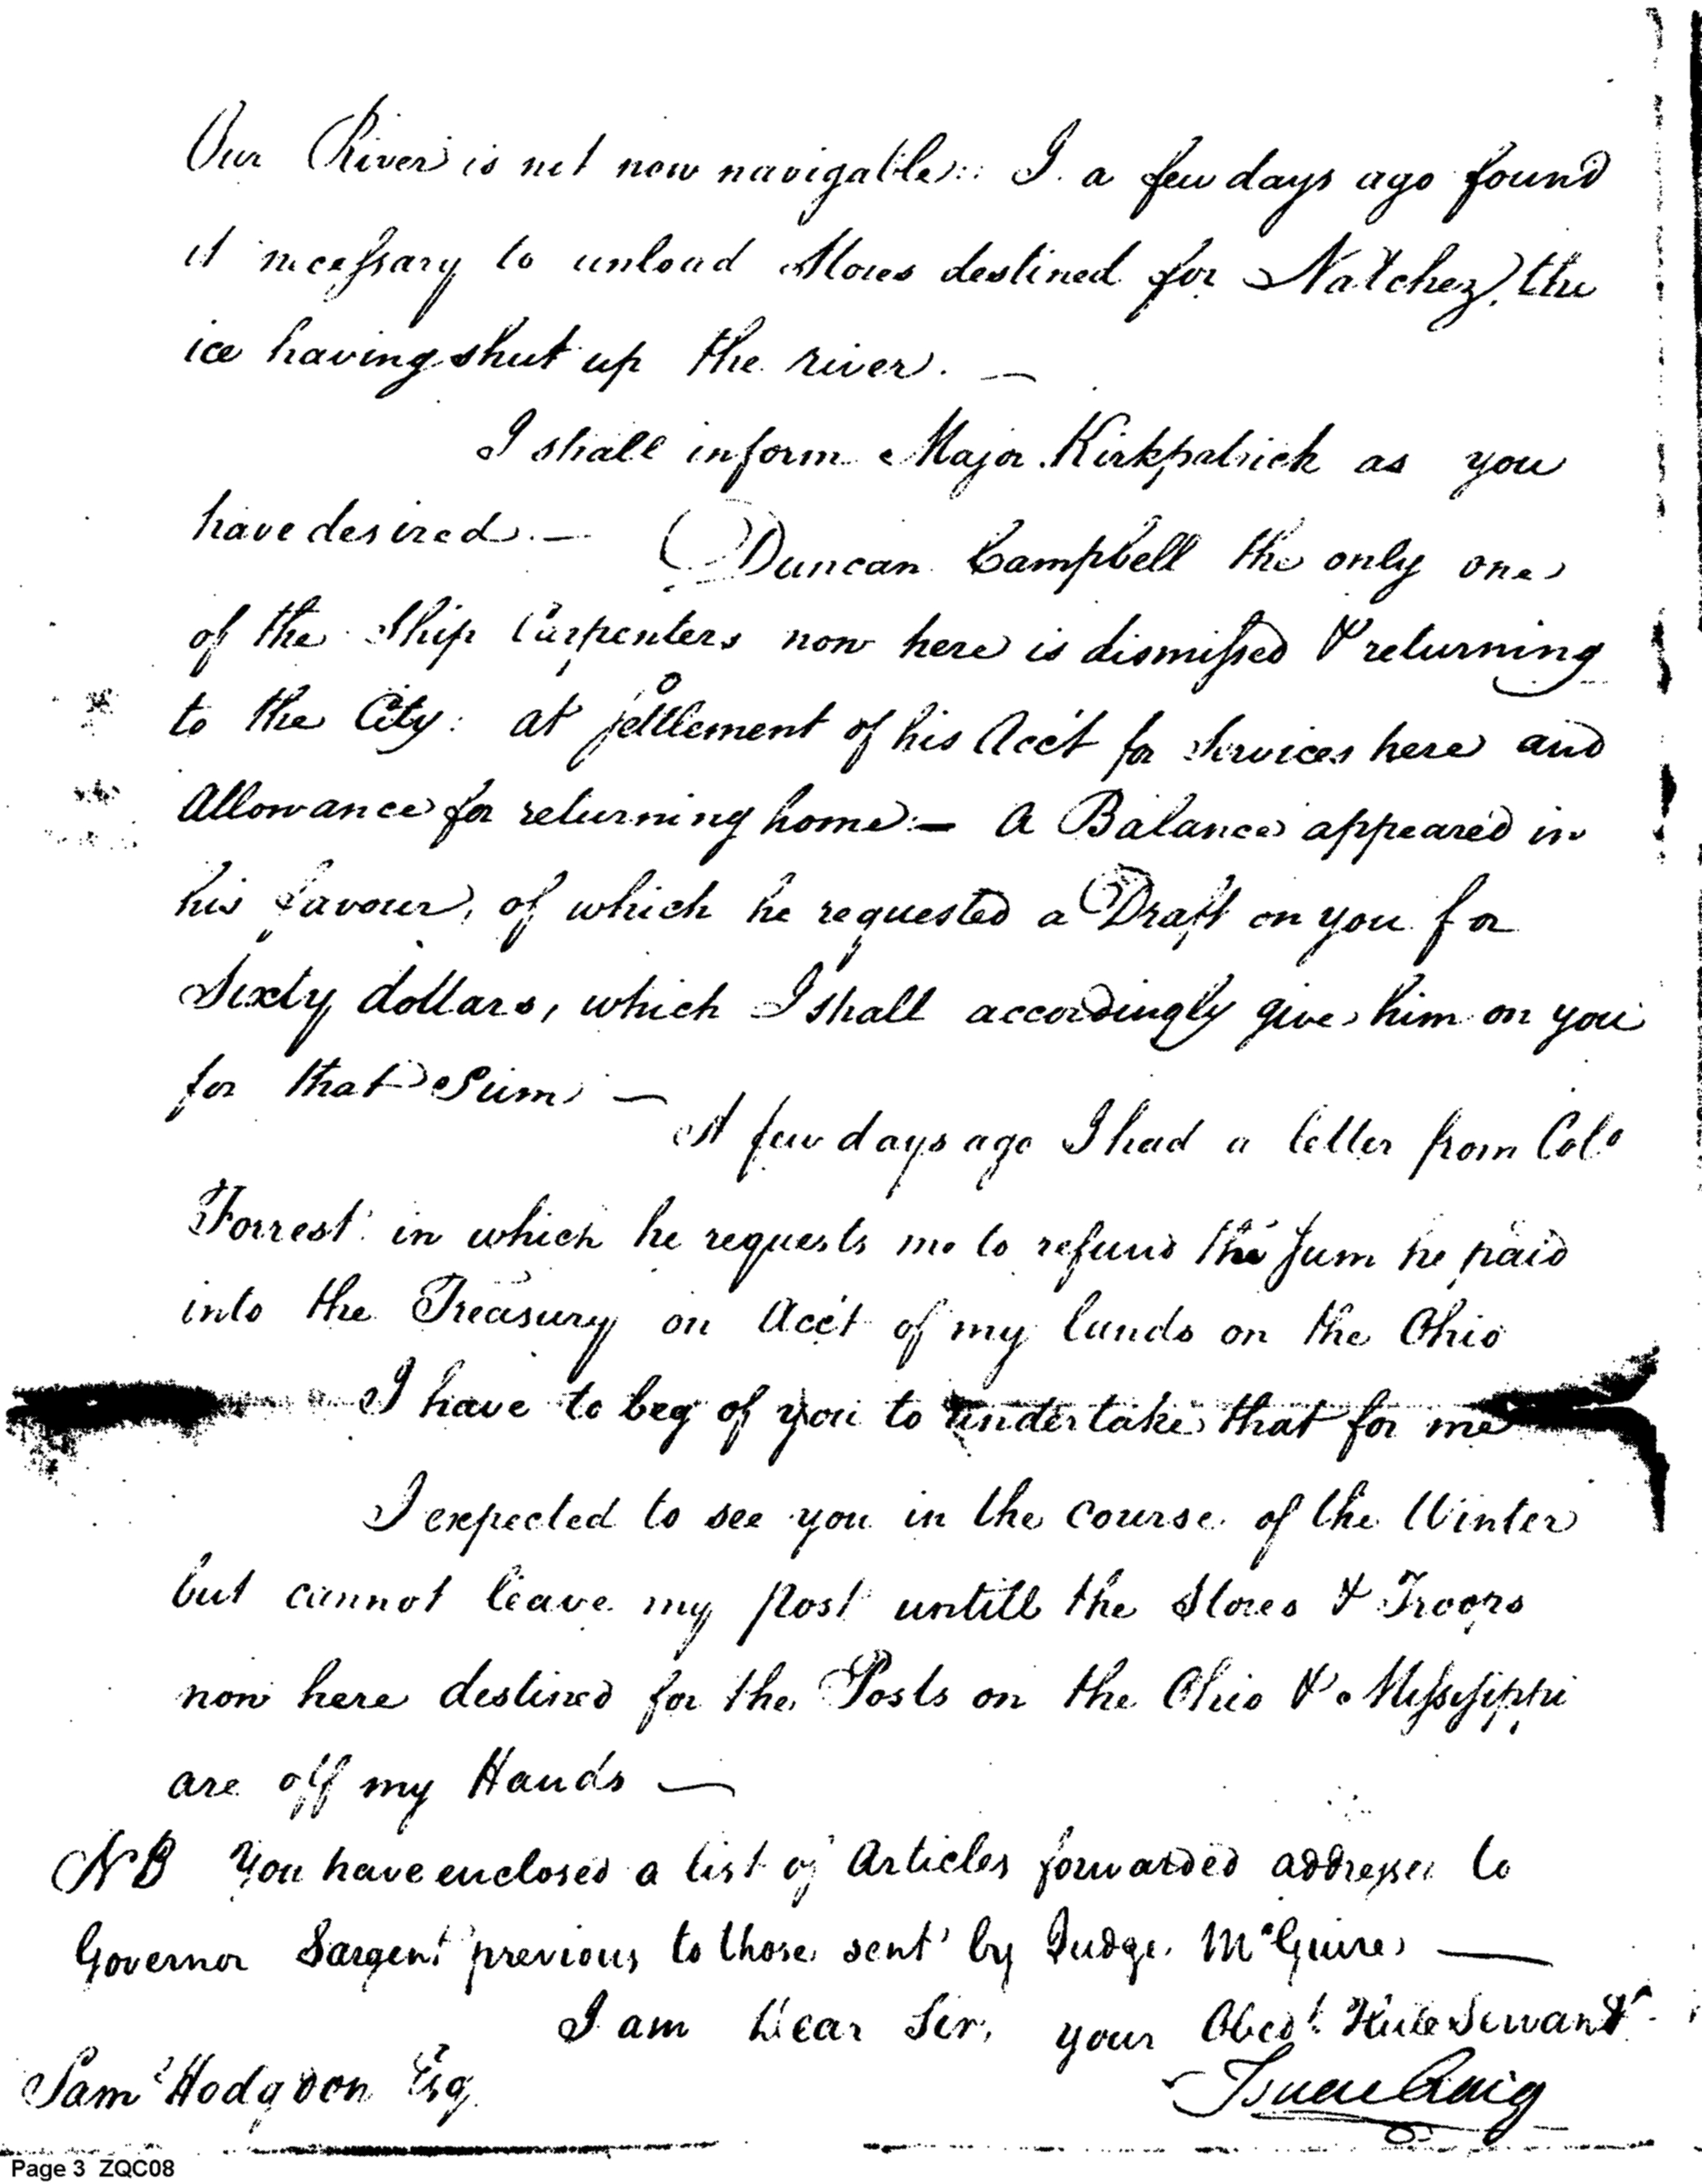 Our River is not now navigable: I a few days ago found
it necessary to unload Stores destined for Natchez, the
ice having shut up the river. —
I shall inform Major Kirkpatrick as you
have desired. — Duncan Campbell the only one
of the Ship Carpenters now here is dismissed & returning
to the City: at settlement of his Acc't for Services here and
Allowance for returning home: — A Balance appeared in
his favour, of which he requested a Draft on you for
Sixty dollars, which I shall accordingly give him on you
for that Sum —
A few days ago I had a letter from Colo
Forrest in which he requests me to refund the Sum he paid
into the Treasury on Acc't of my lands on the Ohio
I have to beg of you to undertake that for me
I expected to see you in the course of the Winter
but cannot leave my Post untill the Stores & Troops
now here destined for the Posts on the Ohio & Missisippi
are off my Hands —
NB You have enclosed a list of Articles forwarded addressed to
Governor Sargent previous to those sent by Judge McGuire —
I am Dear Sir, your Obedt Hule Servant
Saml Hodgdon Esq
Isaac Craig
Page 3 ZQC08